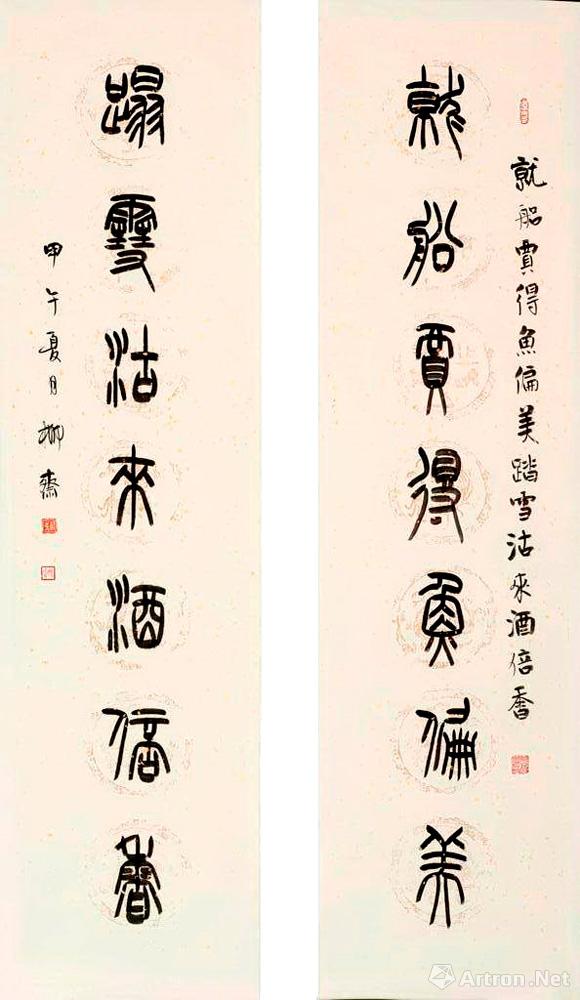 就船賈得魚偏美踏雪沽來酒倍香
就船賈得魚偏美
蹋雪沽來酒倍香
甲午夏月柳齋
Artron.Net